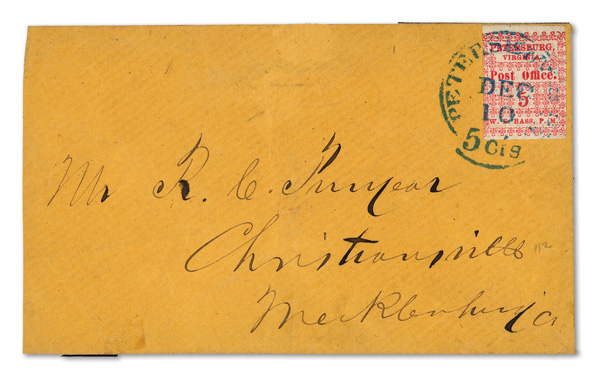 PETERSBURG,
VIRGINIA.
Post Office.
5
W. E. BASS, P. M.
DEC
10
5 Cts
Mr R. C. Puryear
Christiansville
Mecklenburg Co